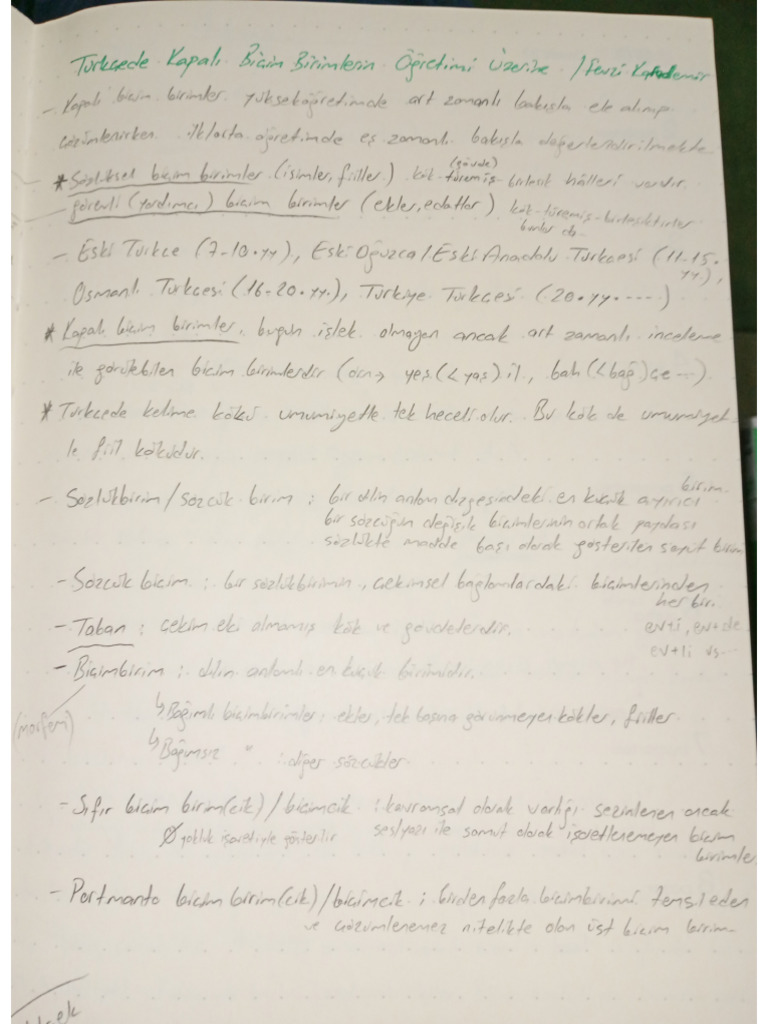 Türkçede Kapalı Biçim Birimlerin Öğretimi Üzerine / Fevzi Karademir
- Kapalı biçim birimler, yükseköğretimde art zamanlı bakışla ele alınıp
çözümlenirken ilk/orta öğretimde eş zamanlı bakışla değerlendirilmekte
* Sözlüksel biçim birimler (isimler, fiiller) kök-türemiş(gövde)-birleşik hâlleri vardır.
görevli (yardımcı) biçim birimler (ekler, edatlar) kök-türemiş-birleşiktirler
bunlar da
- Eski Türkçe (7-10.yy), Eski Oğuzca/Eski Anadolu Türkçesi (11-15.
yy.),
Osmanlı Türkçesi (16-20.yy.), Türkiye Türkçesi (20.yy.....)
* Kapalı biçim birimler, bugün işlek olmayan ancak art zamanlı inceleme
ile görülebilen biçim birimlerdir (örn→ yeş(<yaş)il, bah(<bağ)çe ...).
* Türkçede kelime kökü umumiyetle tek heceli olur. Bu kök de umumiyet-
le fiil köküdür.
- Sözlükbirim/sözcük birim : bir dilin anlam dizgesindeki en küçük ayırıcı birim.
bir sözcüğün değişik biçimlerinin ortak paydası
sözlükte madde başı olarak gösterilen soyut birim
- Sözcük biçim : bir sözlükbirimin, çekimsel bağlamlardaki biçimlerinden
her biri.
- Taban : çekim eki almamış kök ve gövdelerdir. ev+i, ev+de
ev+li vs.
- Biçimbirim : dilin anlamlı en küçük birimidir.
(morfem)
↳ Bağımlı biçimbirimler : ekler, tek başına görünmeyen kökler, fiiller
↳ Bağımsız " : diğer sözcükler
- Sıfır biçim birim(cik) / biçimcik : kavramsal olarak varlığı sezinlenen ancak
Ø yokluk işaretiyle gösterilir ses/yazı ile somut olarak işaretlenemeyen biçim
birimler
- Portmanto biçim birim(cik) / biçimcik : birden fazla biçimbirimi temsil eden
ve çözümlenemez nitelikte olan üst biçim birim